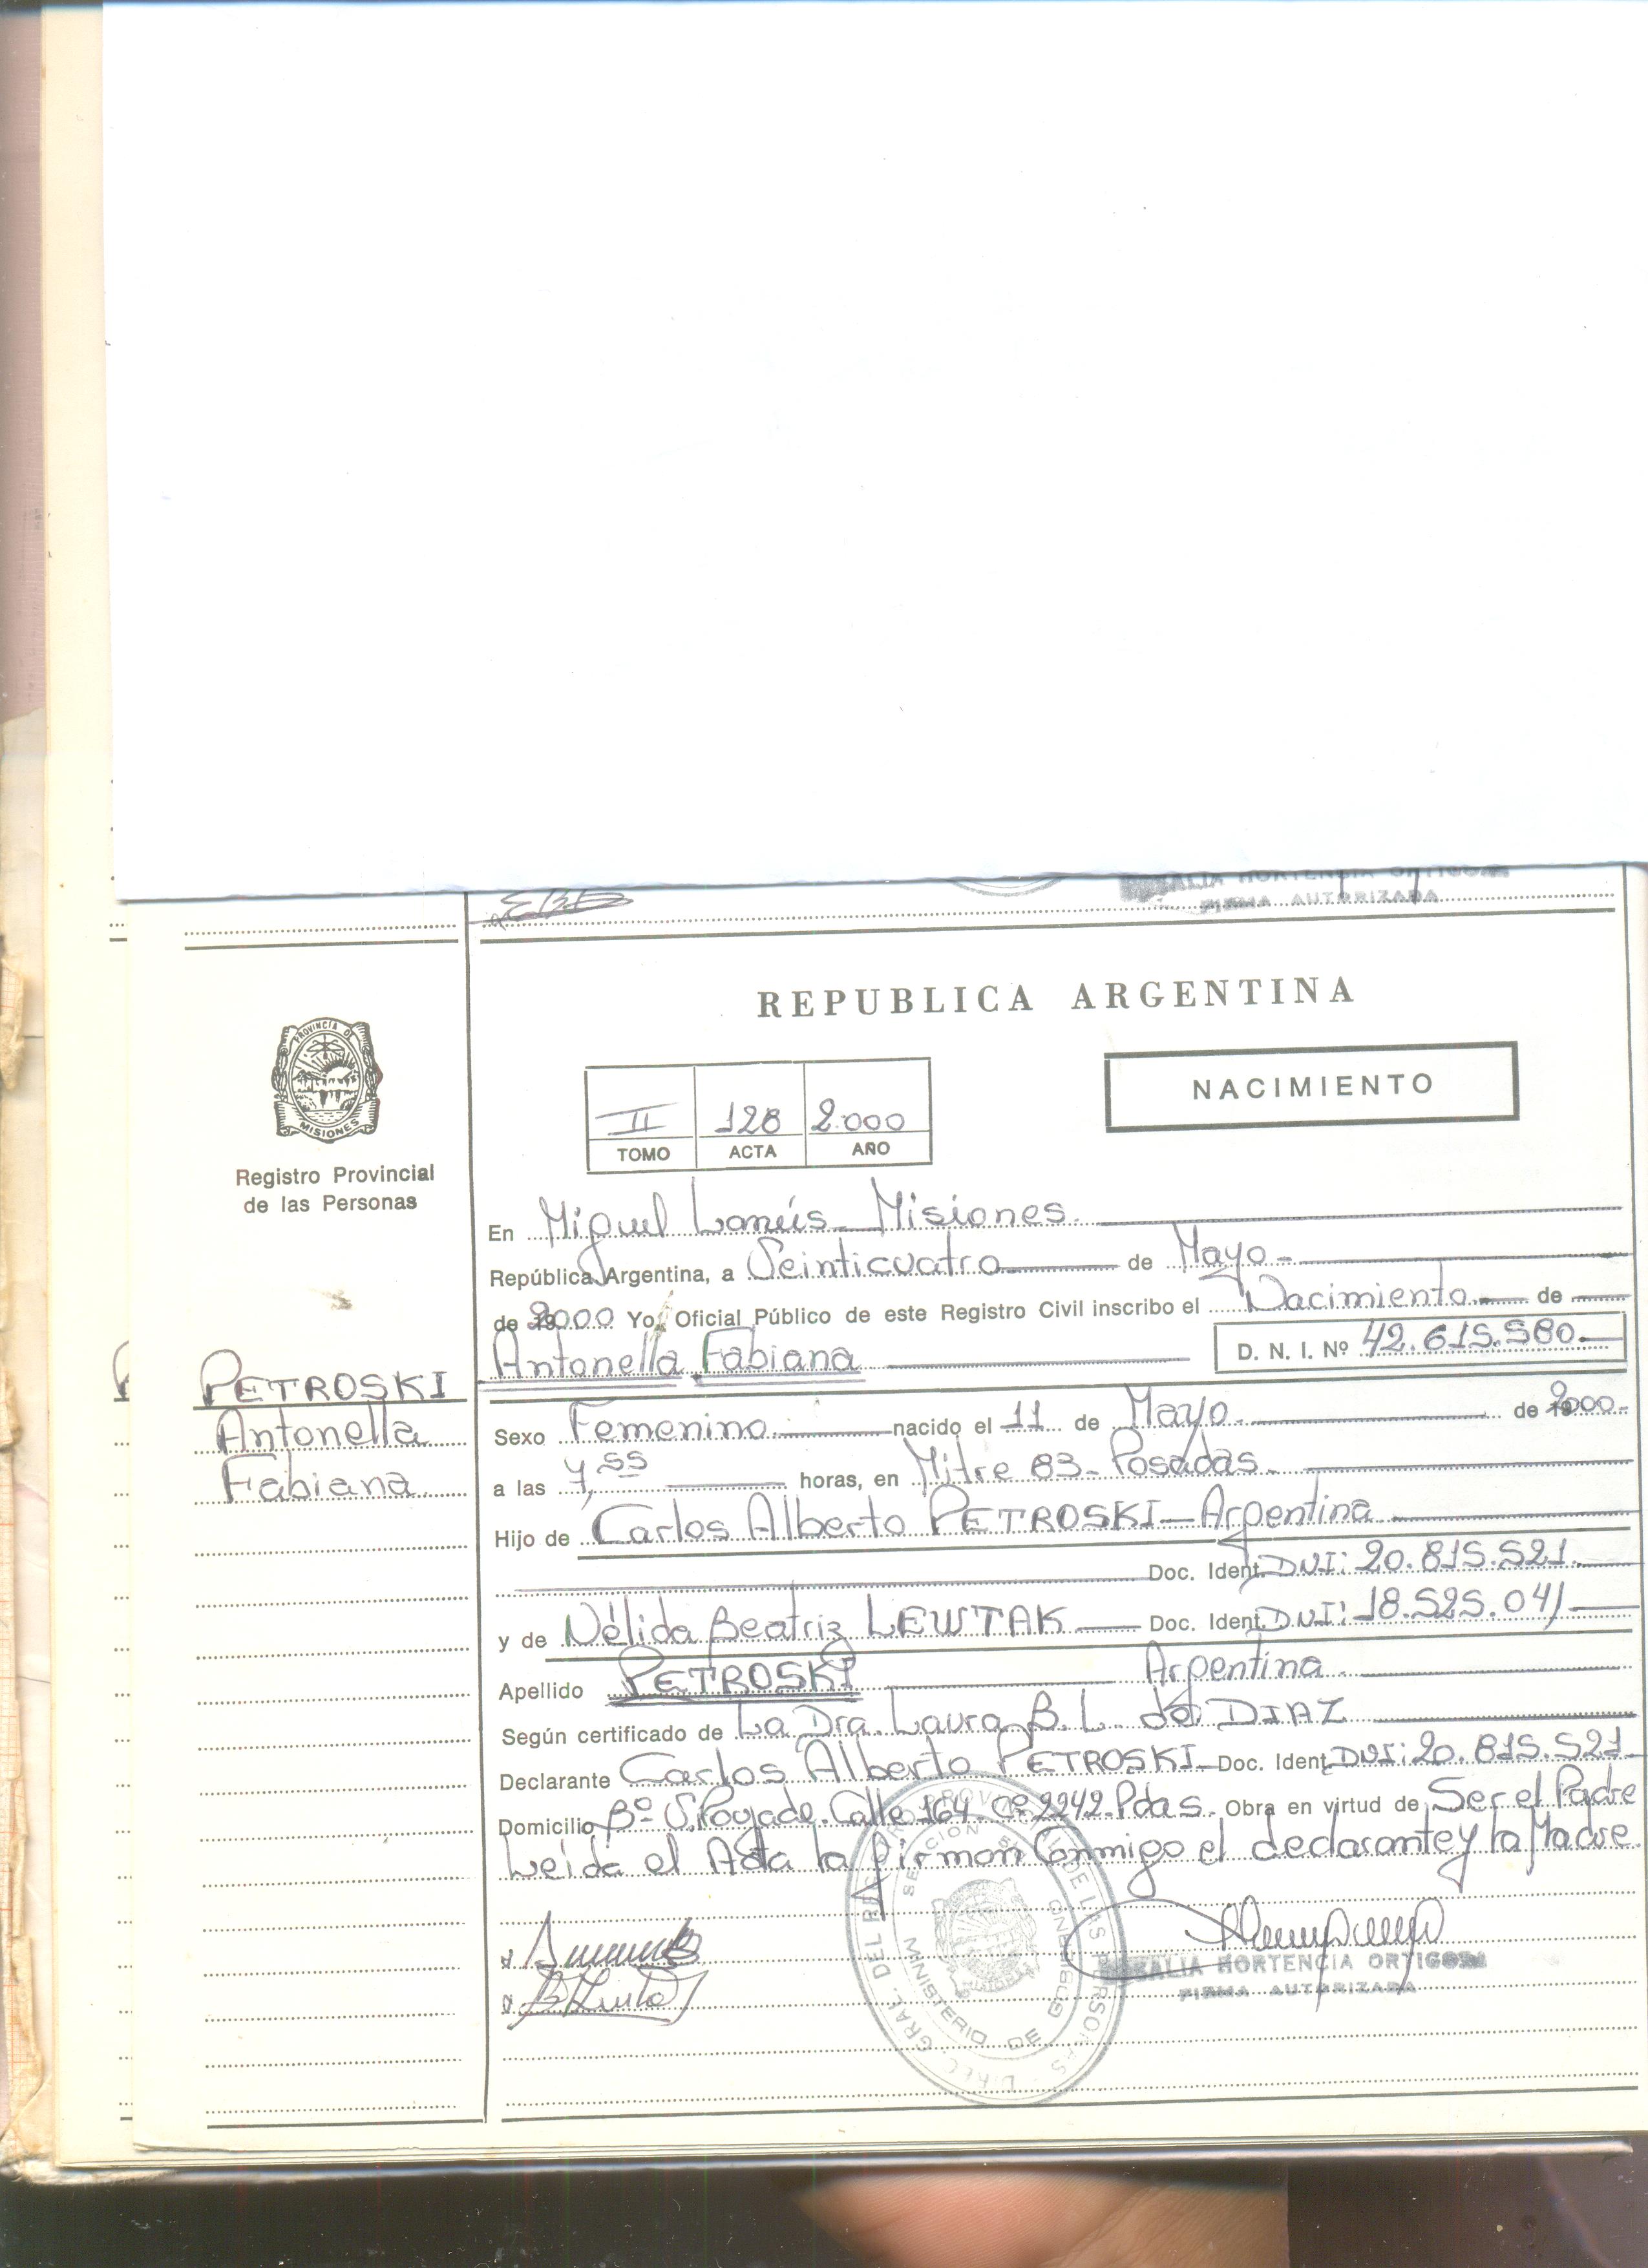 HORTENCIA ORTIGOZA
FIRMA AUTORIZADA
REPUBLICA ARGENTINA
PROVINCIA DE
MISIONES
Registro Provincial
de las Personas
II 128 2.000
TOMO ACTA AÑO
NACIMIENTO
En Miguel Lanús - Misiones.
República Argentina, a Veinticuatro de Mayo -
de 2000 Yo, Oficial Público de este Registro Civil inscribo el Nacimiento de
Antonella Fabiana D. N. I. Nº 42.615.580.
PETROSKI
Antonella
Fabiana
Sexo Femenino. nacido el 11 de Mayo. de 2000-
a las 7,55 horas, en Mitre 83- Posadas.
Hijo de Carlos Alberto PETROSKI-Argentina
Doc. Ident. DNI: 20.815.521.
y de Nélida Beatriz LEWTAK Doc. Ident. DNI: 18.525.041
Apellido PETROSKI Argentina.
Según certificado de La Dra. Laura B. L. de DIAZ
Declarante Carlos Alberto PETROSKI- Doc. Ident. DNI: 20.815.521-
Domicilio Bº S. Poujade. Calle 164. nº 2242. Pdas. Obra en virtud de Ser el Padre
Leída el Acta la firman Conmigo el declarante y la Madre.
DIREC. GRAL. DEL REG. PROVINCIAL DE LAS PERSONAS
MINISTERIO DE GOBIERNO
SECCION
HORTENCIA ORTIGOZA
FIRMA AUTORIZADA